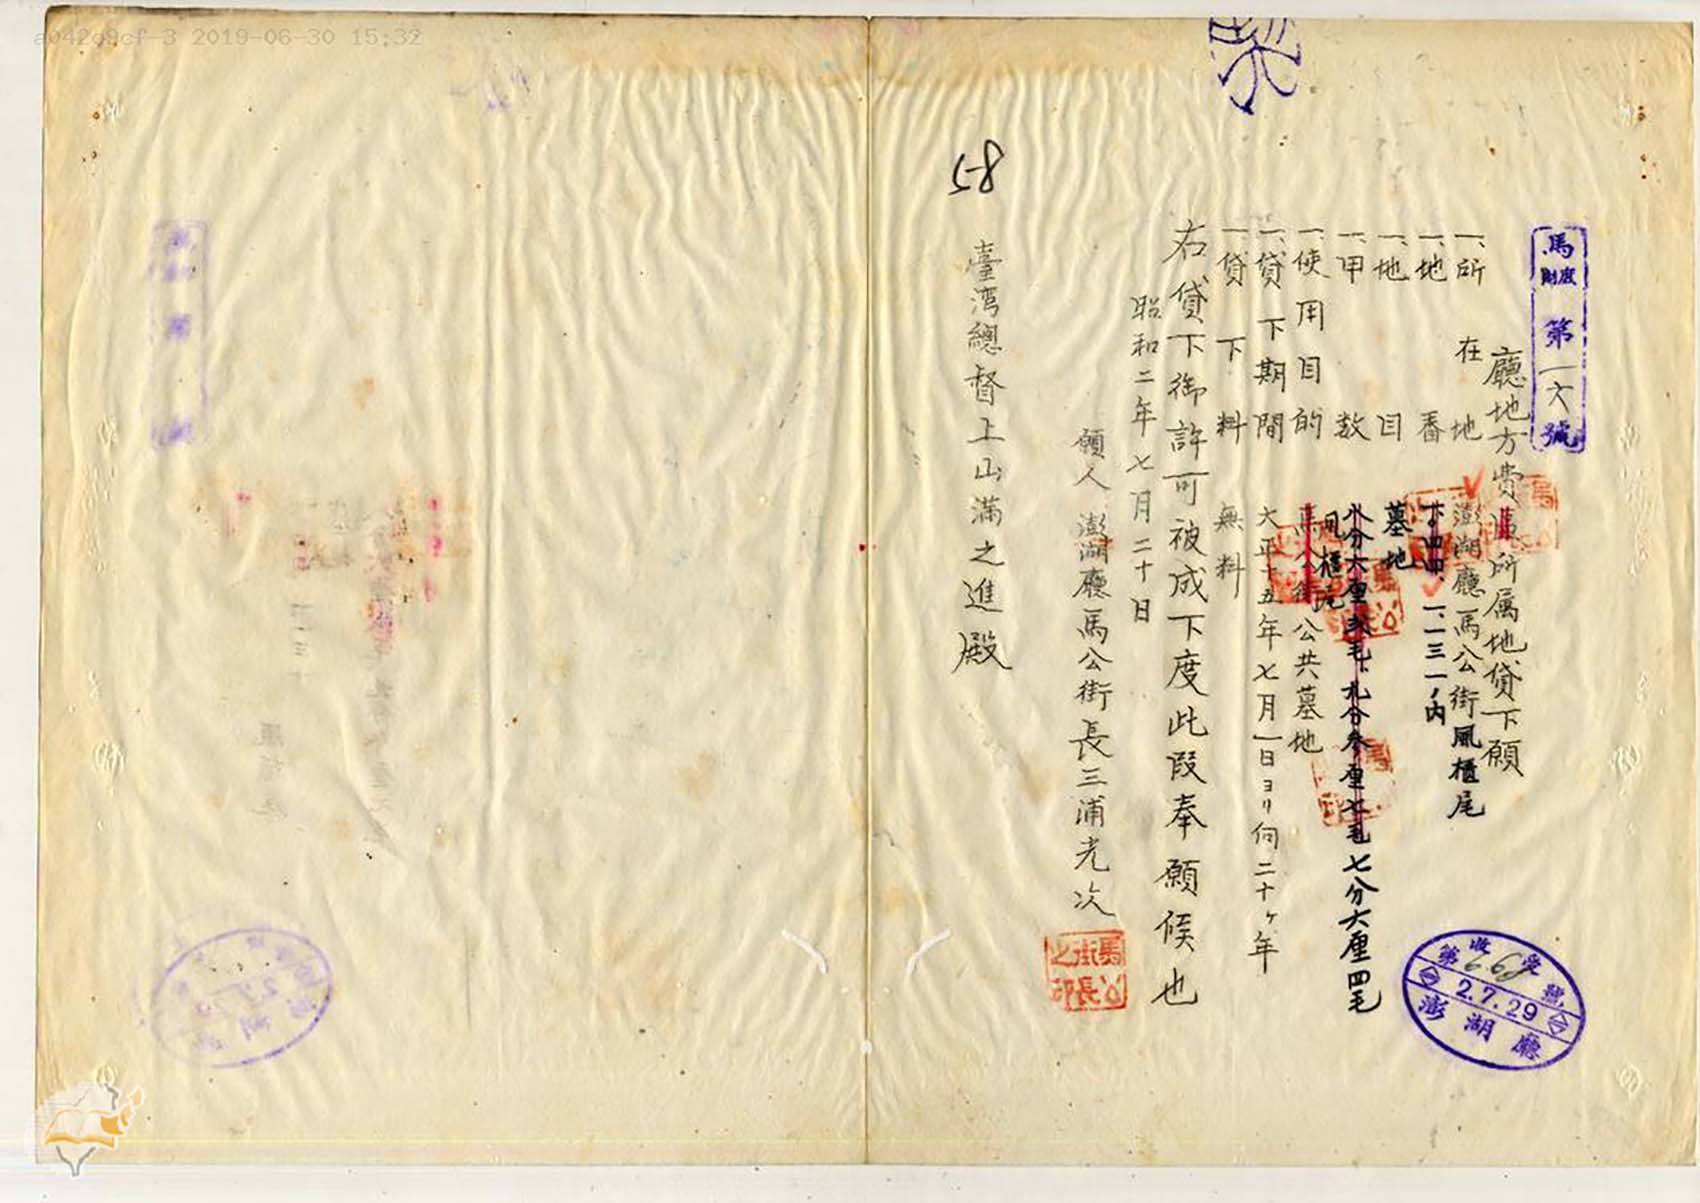 a042c9cf-3 2019-06-30 15:32
馬 庶財 第一六號
廳地方費 所属地貸下願
一、所在地 澎湖廳馬公街風櫃尾
一、地番 一、一三一ノ内
一、地目 墓地
一、甲数 八分六厘弐毛、九分参厘七毛 七分六厘四毛
一、使用目的 馬公街公共墓地
風櫃尾
一、貸下期間 大正十五年七月一日ヨリ向二十ヶ年
一、貸下料 無料
右貸下御許可被成下度此段奉願候也
昭和二年七月二十日
願人 澎湖廳馬公街長三浦光次
馬公街長之印
臺湾總督上山滿之進殿
58
收受
第 號
2.7.29
澎湖廳